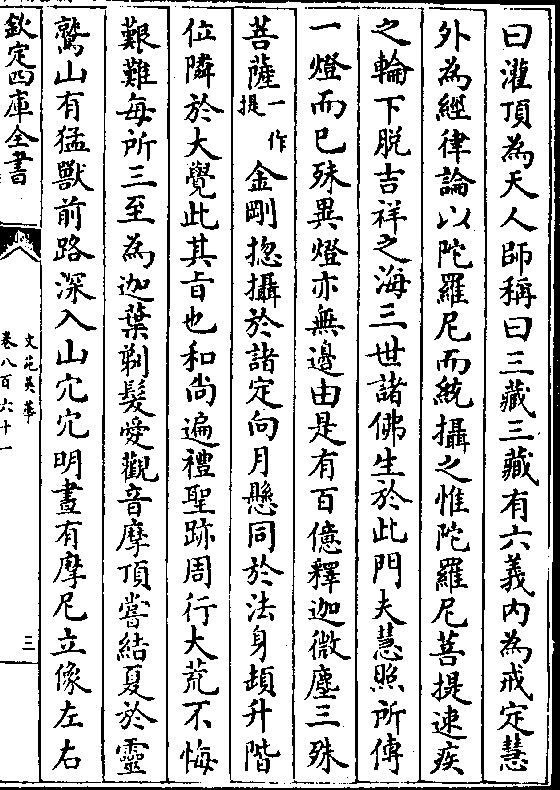 曰灌頂為天人師稱曰三藏三藏有六義內為戒定慧
外為經律論以陀羅尼而統攝之惟陀羅尼菩提速疾
之輪下脫吉祥之海三世諸佛生於此門夫慧照所傳
一燈而已殊異燈亦無邊由是有百億釋迦微塵三殊
菩薩一作提金剛揔攝於諸定向月懸同於法身頓升階
位隣於大覺此其㫖也和尚遍禮聖跡周行大荒不悔
艱難每所三至為迦葉剃髮受觀音摩頂嘗結夏於靈
鷲山有猛獸前路深入山穴穴明晝有摩尼立像左右
欽定四庫全書
文苑英華
卷八百六十一
三